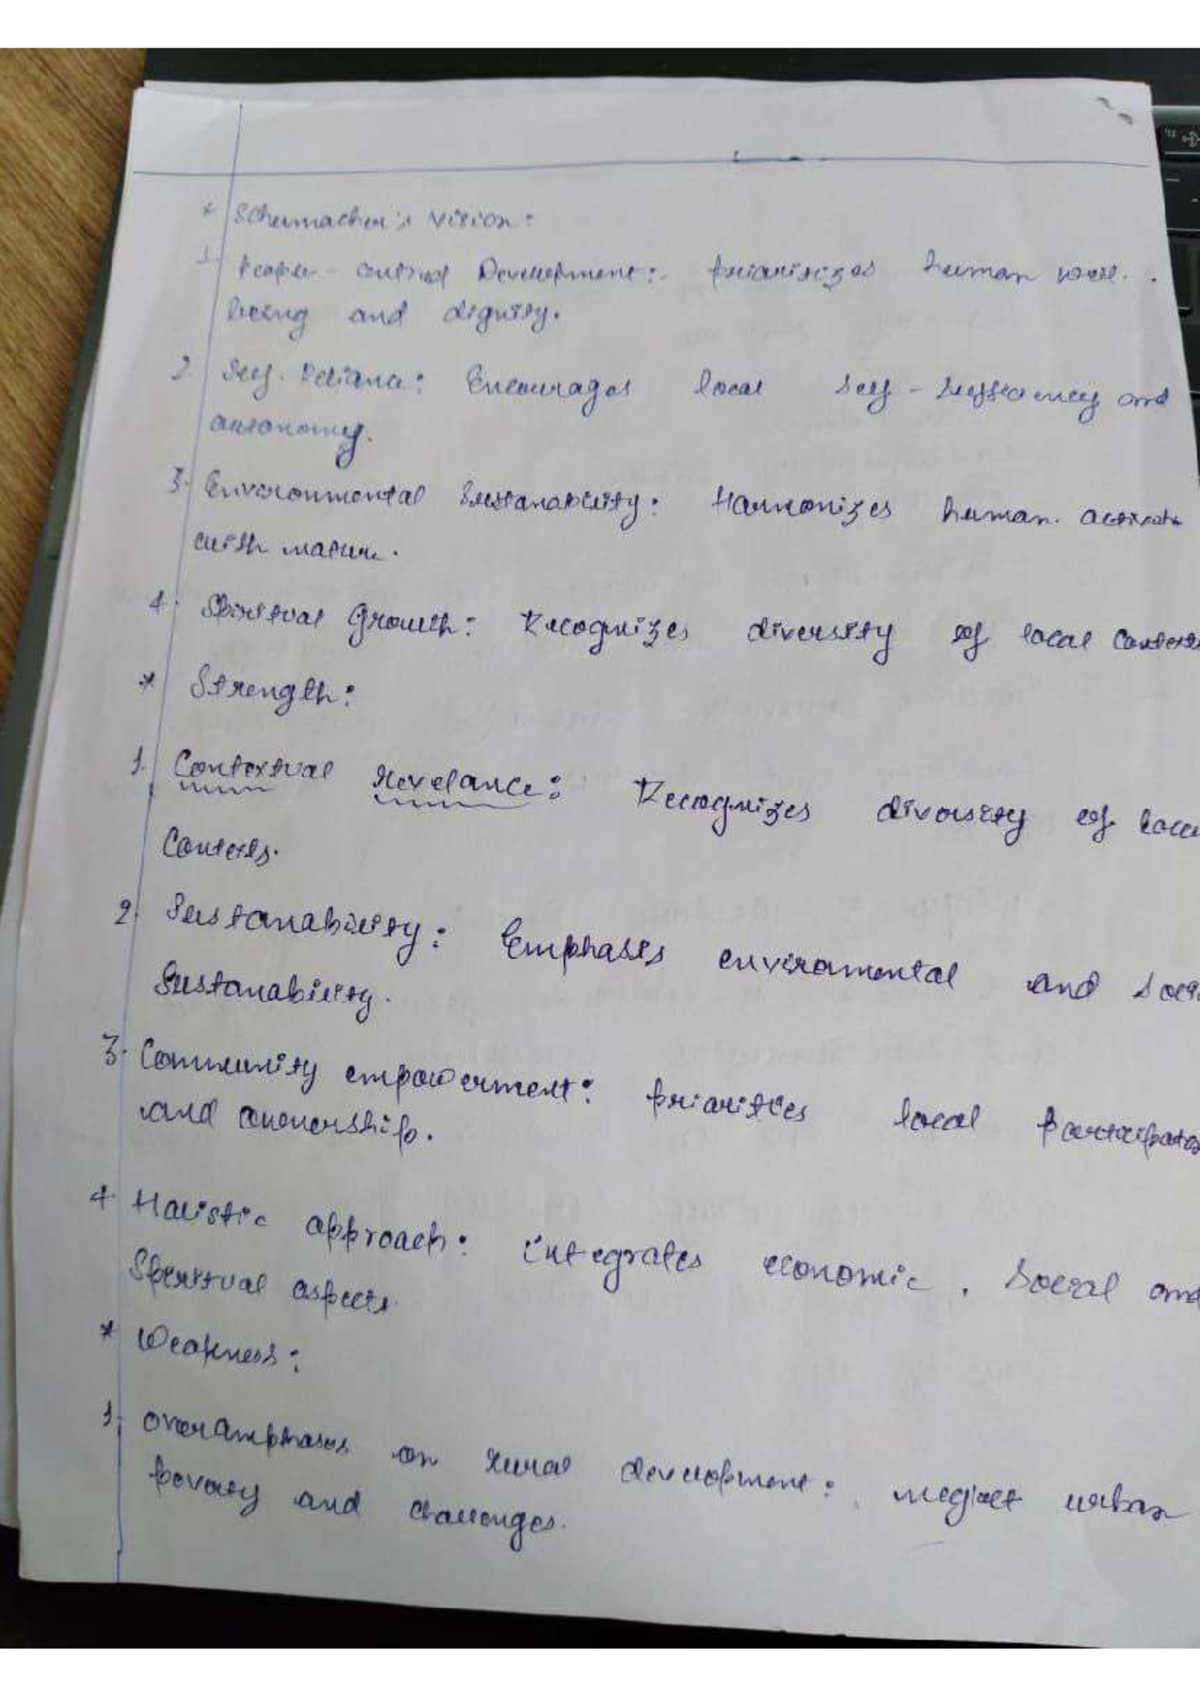 * Schumacher's Vision:
1. People-centred Development:- prioritizes human well.
being and dignity.
2. Self-Reliance: Encourages local self-sufficiency and
autonomy.
3. Environmental Sustanability: Harmonizes human
with nature.
4. Spiritual Growth: Recognizes diversity of local
* Strength:
1. Contextual revelance: Recognizes diversity of
Contexts.
2. Sustanability: Emphases enviromental and
Sustanability.
3. Community empowerment: priarities local
and ownership.
4 Holistic approach: integrates economic, Social and
Spiritual aspects.
* Weakness:
1. overemphases on rural development: neglect urban
poverty and challenges.